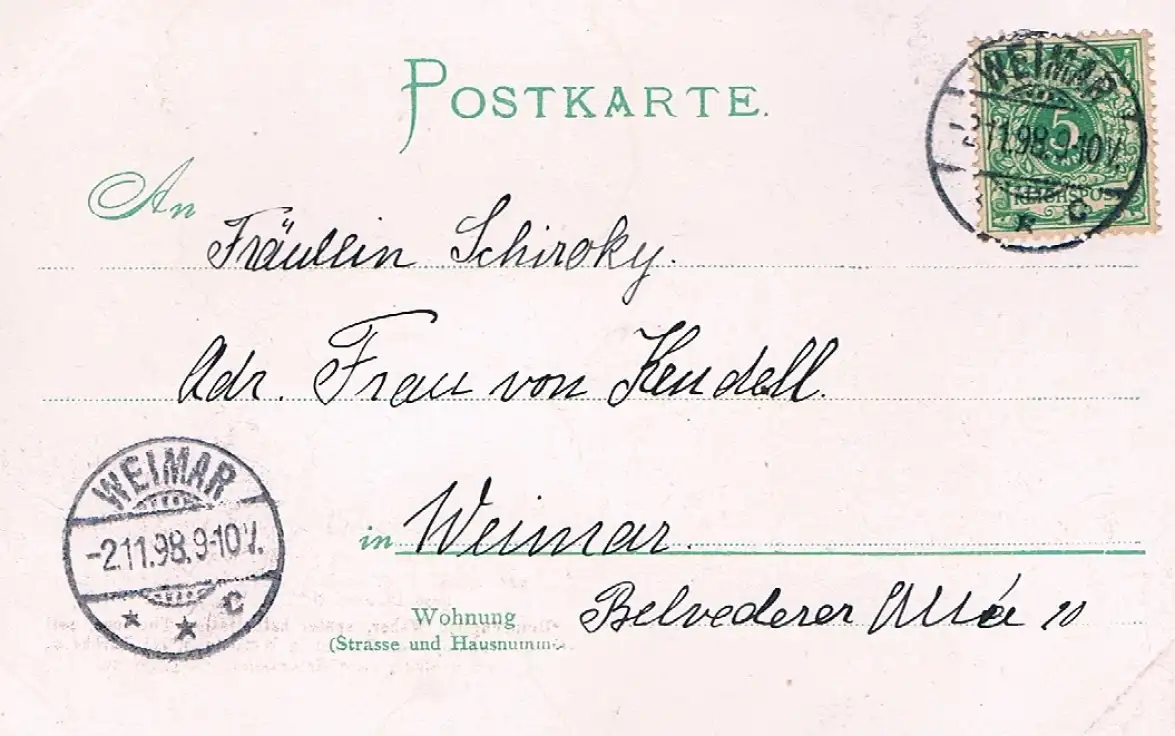 POSTKARTE.
WEIMAR
-2.11.98.9-10V.
5
REICHSPOST
* C
An
Fräulein Schiroky.
Adr. Frau von Keudell.
WEIMAR
-2.11.98.9-10V.
* * C
in Weimar.
Wohnung
(Strasse und Hausnumme
Belvederer Allée 11